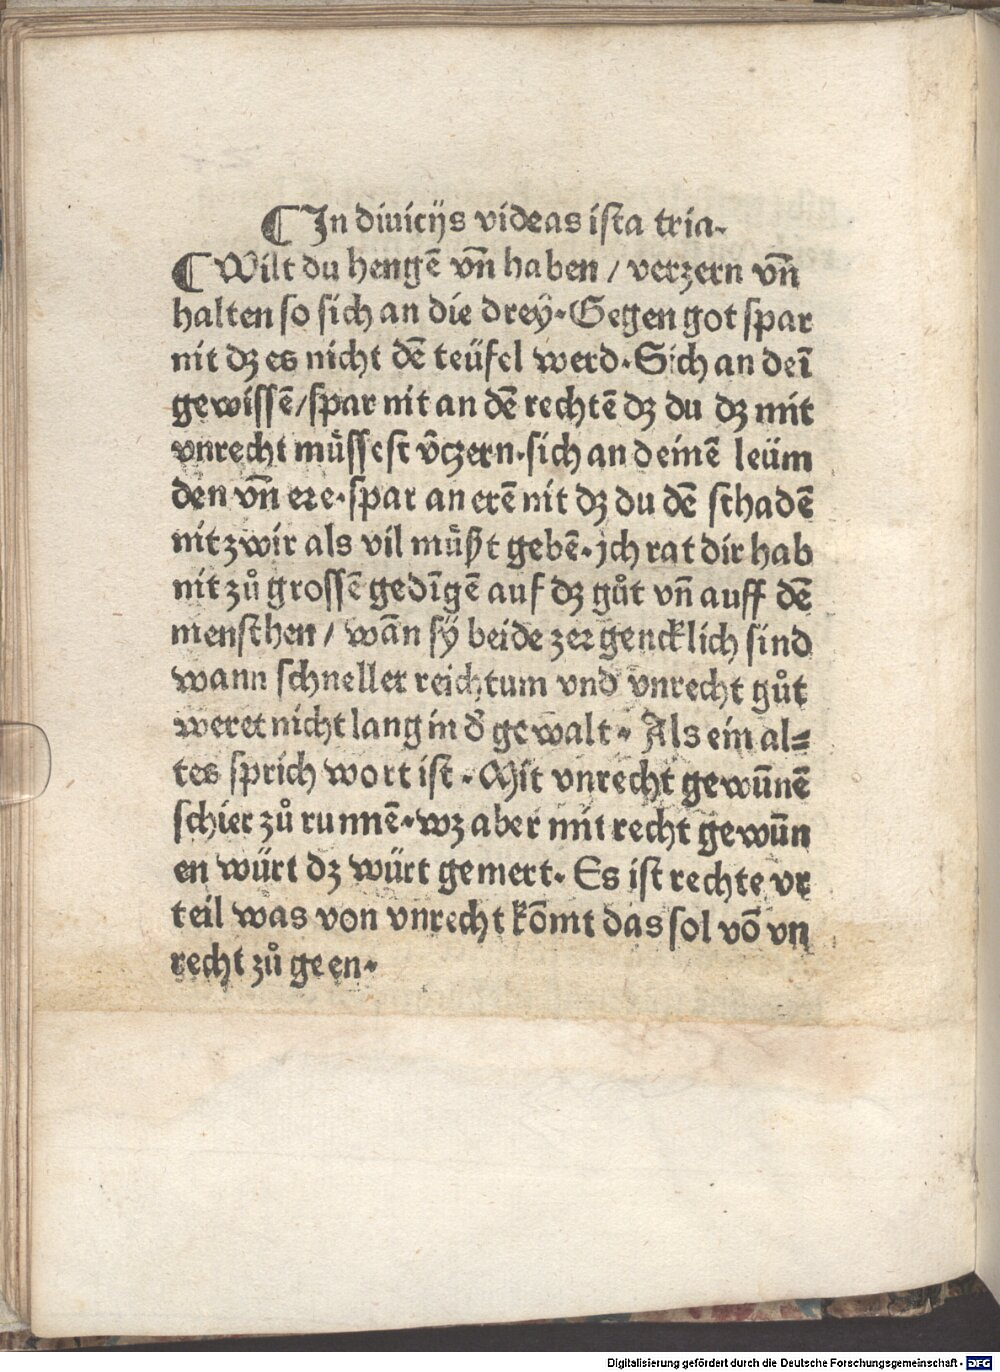 ¶ In diuicijs videas ista tria.
¶ Wilt du hengē vn̄ haben / verzern vn̄
halten so sich an die dreÿ. Gegen got spar
nit dz es nicht dē teüfel werd. Sich an deī
gewissē / spar nit an dē rechtē dz du dz mit
vnrecht müssest v̄czern. sich an deinē leüm
den vn̄ ere. spar an erē nit dz du dē schadē
nit zwir als vil müßt gebē. jch rat dir hab
nit zů grossē gedīgē auf dz gůt vn̄ auff dē
menschen / wān sÿ beide zergencklich sind
wann schneller reichtum vnd vnrecht gůt
weret nicht lang in d̄ gewalt. Als ein al⸗
tes sprich wort ist. Mit vnrecht gewūnē
schier zů runnē. wz aber mit recht gewūn
en würt dz würt gemert. Es ist rechte vr
teil was von vnrecht kōmt das sol vō vn
recht zů geen.
Digitalisierung gefördert durch die Deutsche Forschungsgemeinschaft - DFG